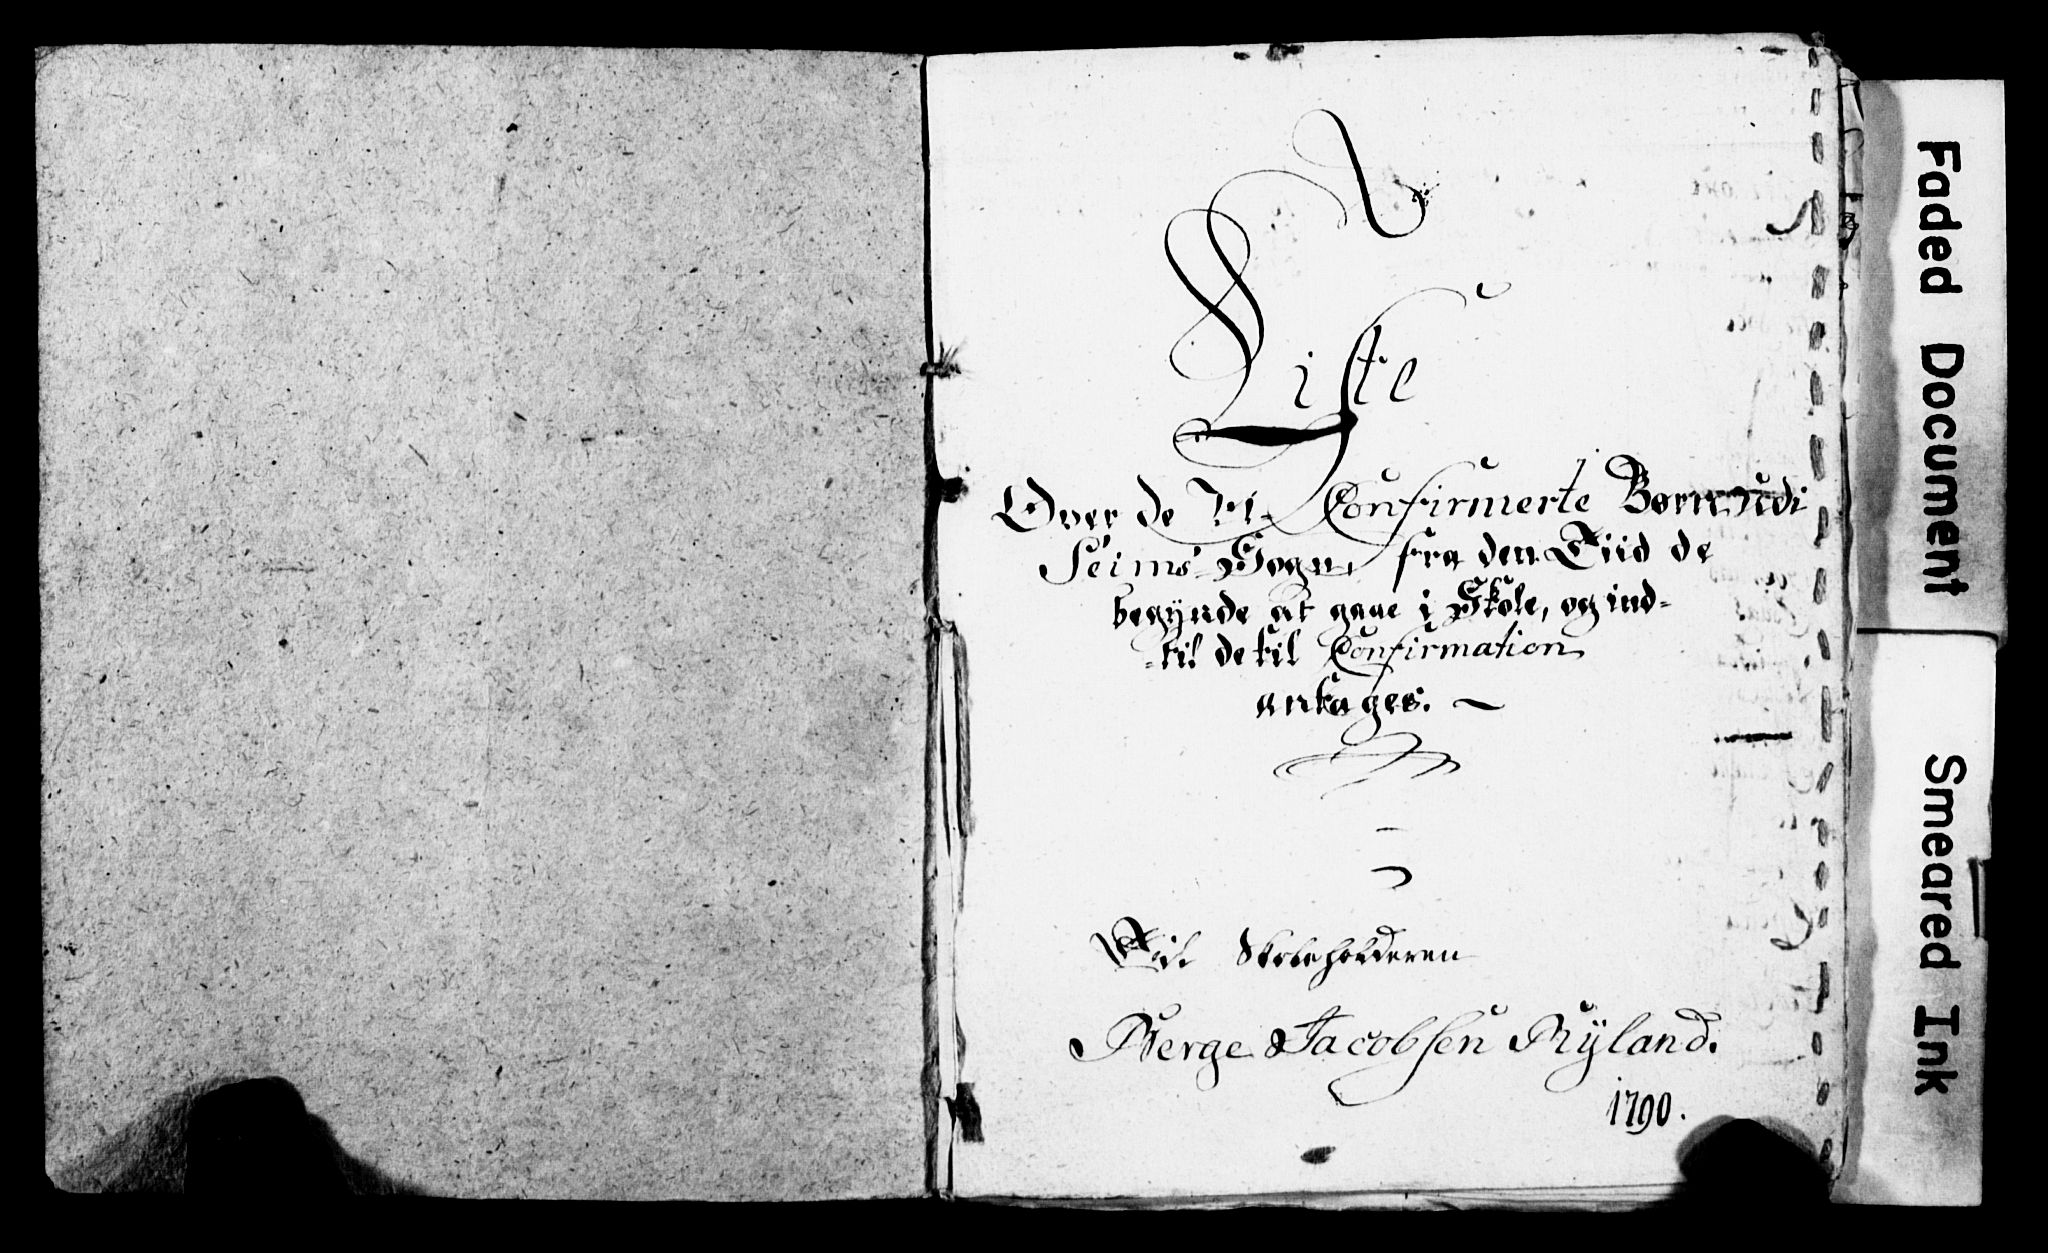 Liste
Over de Ui- Confirmerte Børn udi
Seims Sogn, fra den Tiid de
begÿnde at gaae i Skole, og ind-
-til de til Confirmation
antages. ~
Ved Skoleholderen
Børge Jacobsen Rÿland.
1790.
Faded Document
Smeared Ink